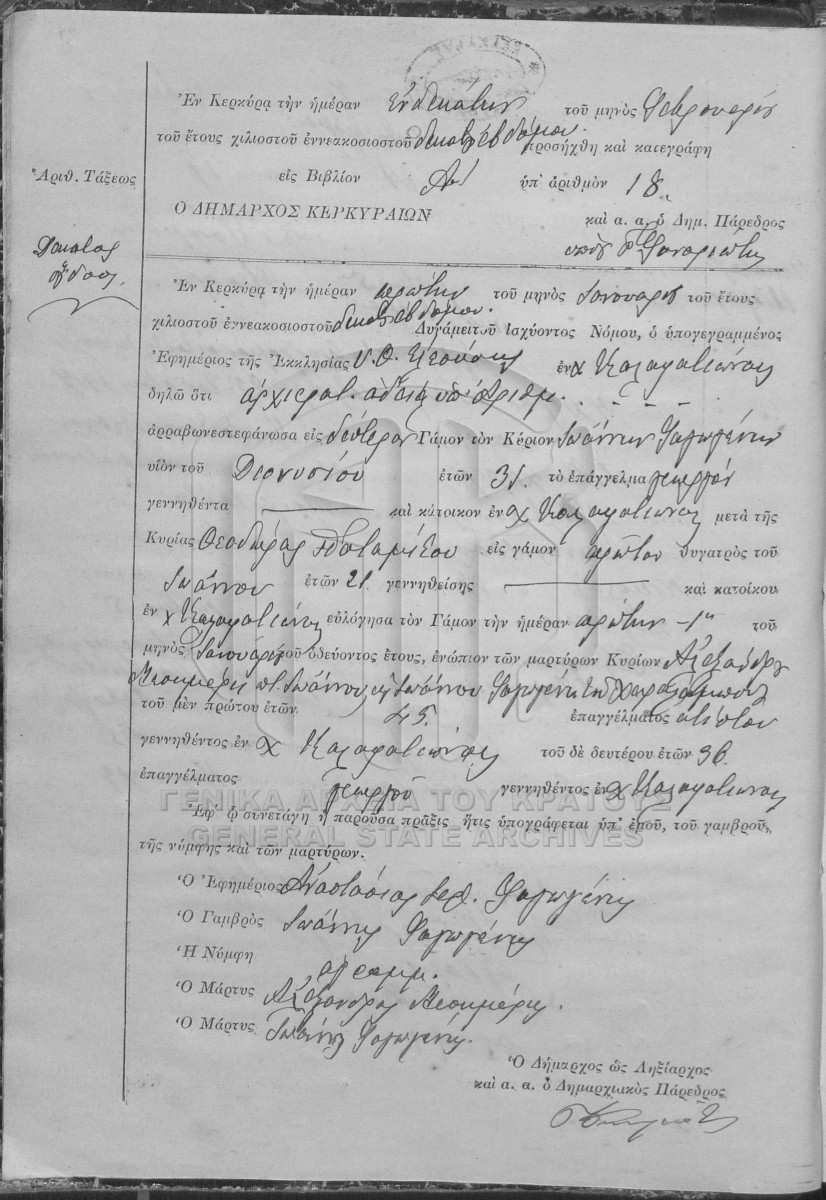 Ἐν Κερκύρᾳ τὴν ἡμέραν ἑνδεκάτην τοῦ μηνὸς Φεβρουαρίου
τοῦ ἔτους χιλιοστοῦ ἐννεακοσιοστοῦ δεκάτου ἑβδόμου προσήχθη καὶ κατεγράφη
Ἀριθ. Τάξεως
εἰς Βιβλίον Α' ὑπ' ἀριθμὸν 18
Ο ΔΗΜΑΡΧΟΣ ΚΕΡΚΥΡΑΙΩΝ καὶ α. α. ὁ Δημ. Πάρεδρος
Δέκατος
ὄγδοος
Ἐν Κερκύρᾳ τὴν ἡμέραν πρώτην τοῦ μηνὸς Ἰανουαρίου τοῦ ἔτους
χιλιοστοῦ ἐννεακοσιοστοῦ δεκάτου ἑβδόμου Δυνάμει τοῦ ἰσχύοντος Νόμου, ὁ ὑπογεγραμμένος
Ἐφημέριος τῆς Ἐκκλησίας Υ. Θ. Ἐλεούσης ἐν χ Καλαφατιώνας
δηλῶ ὅτι ἀρχιερατ. ἀδείᾳ ὑπ' Ἀριθμ. - - -
ἀρραβωνεστεφάνωσα εἰς δεύτερον Γάμον τὸν Κύριον Ἰωάννην Φαγωγένην
υἱὸν τοῦ Διονυσίου ἐτῶν 31 τὸ ἐπάγγελμα γεωργόν
γεννηθέντα καὶ κάτοικον ἐν χ Καλαφατιώνας μετὰ τῆς
Κυρίας Θεοδώρας Ποταμίτου εἰς γάμον πρῶτον θυγατρὸς τοῦ
Ἰωάννου ἐτῶν 21 γεννηθείσης καὶ κατοίκου
ἐν χ Καλαφατιώνας εὐλόγησα τὸν Γάμον τὴν ἡμέραν πρώτην -1ην τοῦ
μηνὸς Ἰανουαρίου τοῦ ὁδεύοντος ἔτους, ἐνώπιον τῶν μαρτύρων Κυρίων Ἀλεξάνδρου
Μεσημέρη π. Ἰωάννου ϗ Ἰωάννου Φαγωγένη τοῦ Χαραλάμπους
τοῦ μὲν πρώτου ἐτῶν 45. ἐπαγγέλματος
γεννηθέντος ἐν χ Καλαφατιώνας τοῦ δὲ δευτέρου ἐτῶν 36
ἐπαγγέλματος γεωργοῦ γεννηθέντος ἐν χ Καλαφατιώνας
ΓΕΝΙΚΑ ΑΡΧΕΙΑ ΤΟΥ ΚΡΑΤΟΥΣ
Ἐφ' ᾧ συνετάγη ἡ παροῦσα πρᾶξις ἥτις ὑπογράφεται ὑπ' ἐμοῦ, τοῦ γαμβροῦ,
GENERAL STATE ARCHIVES
τῆς νύμφης καὶ τῶν μαρτύρων.
Ὁ Ἐφημέριος Ἀναστάσιος ἱερ. Φαγωγένης
Ὁ Γαμβρὸς Ἰωάννης Φαγωγένης
Ἡ Νύμφη ἀγραμμ.
Ὁ Μάρτυς Ἀλέξανδρος Μεσημέρης.
Ὁ Μάρτυς Ἰωάννης Φαγωγένης.
Ὁ Δήμαρχος ὡς Ληξίαρχος
καὶ α. α. ὁ Δημαρχιακὸς Πάρεδρος